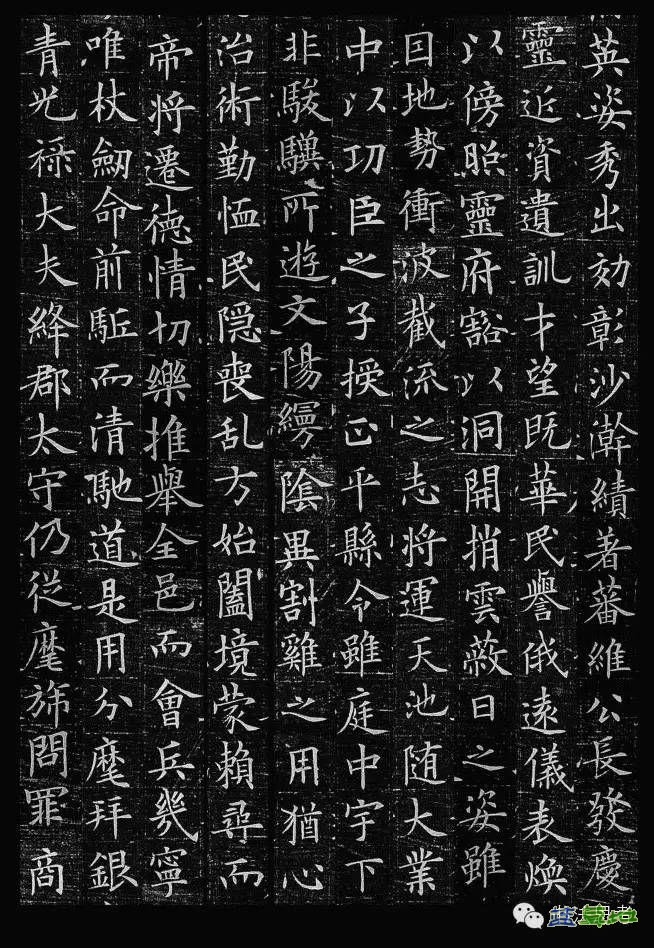 英姿秀出効彰沙澣績著蕃維公長發慶
靈近資遺訓才望既華民譽俄遠儀表煥
以傍照靈府豁以洞開捎雲蔽日之姿雖
囙地勢衝波截流之志将運天池随大業
中以功臣之子授正平縣令雖庭中宇下
非駿驥所遊文陽縵陰異割雞之用猶心
治術勤恤民隠喪乱方始闔境蒙賴尋而
帝将遷德情切樂推舉全邑而會兵幾寧
唯杖劒命前駈而清馳道是用分麾拜銀
青光禄大夫絳郡太守仍從麾旆問罪商